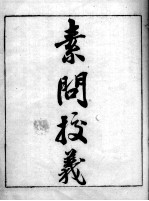 素問校義